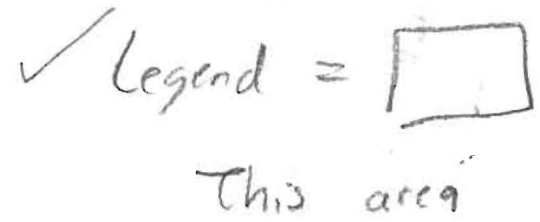 ✓ Legend = □
This area